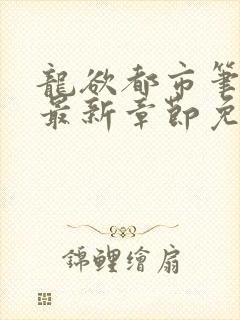 龍欲都市筆
最新章節免
錦鯉繪扇